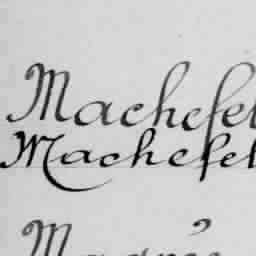 Machefel
Machefel